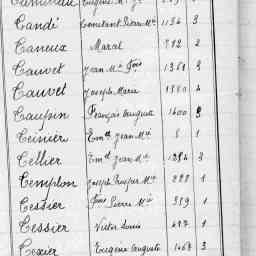 Candé Constant Pierre Mie 1134 3
Caneux Marcel 712 2
Cauvet Jean Mie Fois 1361 3
Cauvet Joseph Marie 1880 4
Caupin François Auguste 1400 3
Ceinière Eml Jean Mie 8 1
Cellier Eml Jean Mie 1284 3
Templon Joseph Prosper Mie 288 1
Cessier Fois Pierre Mie 389 1
Cessier Victor Louis 427 1
Cexier Eugène Auguste 1067 3